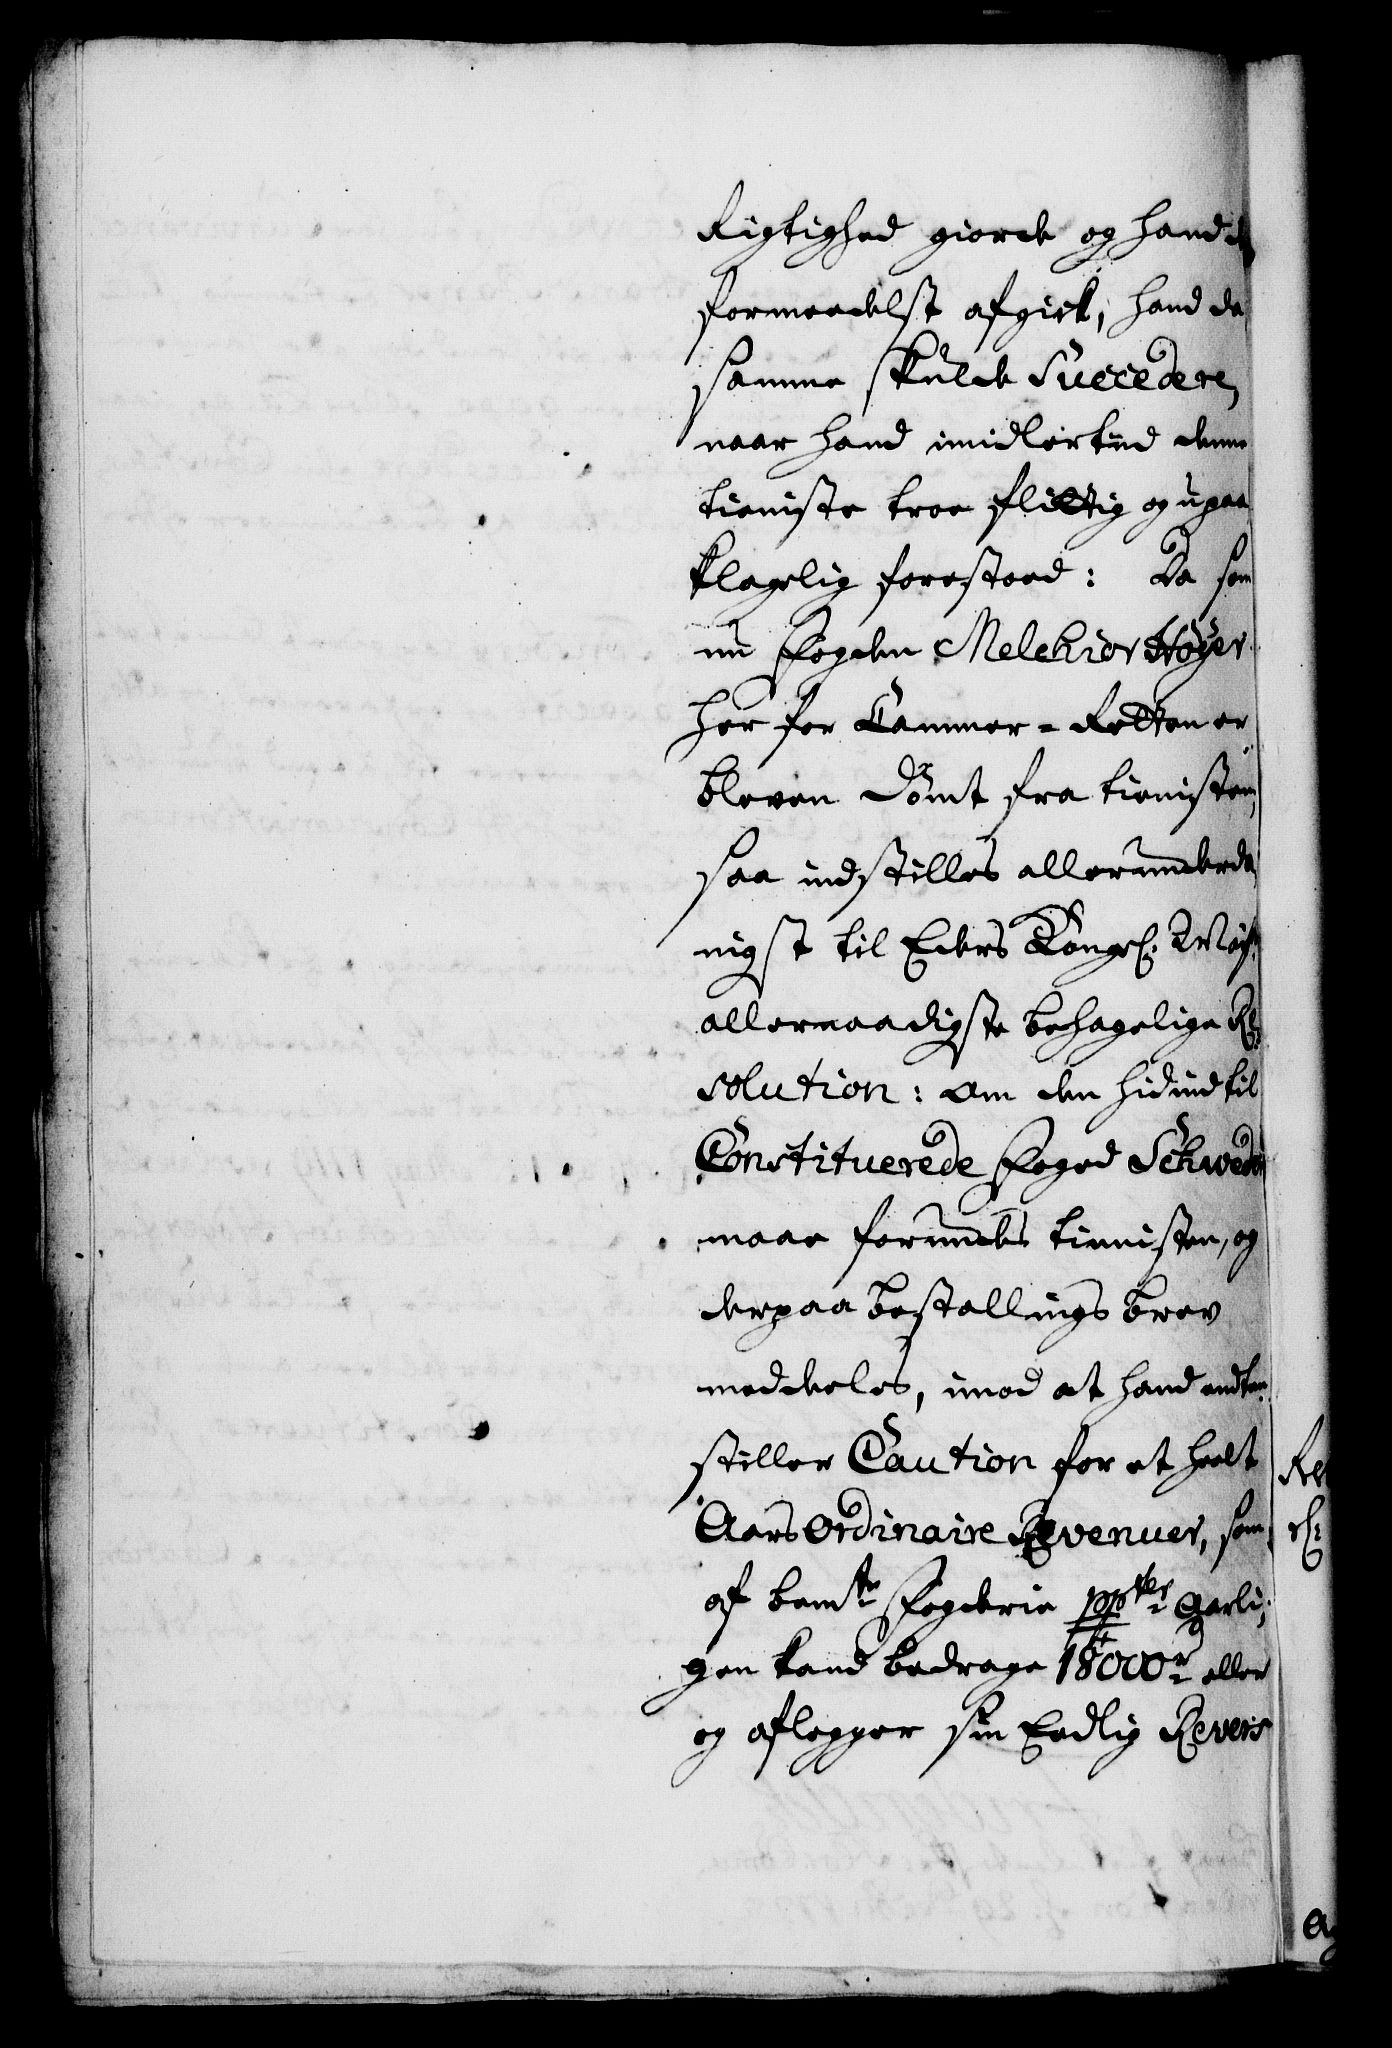 Rigtighed giorde og hand
formeedelst afgick, hand da
samme skulde Succedere,
naar hand imidlertiid denne
tieniste troe flittig og upaa
klagelig forestoed: Da som
nu Fogden Melchior Höyer
her for Cammer-Retten er
bleven dömt fra tienisten,
saa indstilles allerunderda
nigst til Eders Kongel: May:
allernaadigste behagelige Re
solution: om den hidindtil
Constituerede Foged Schwede
maae forundes tienisten, og
derpaa bestallings brev
meddeeles, imod at hand endten
stiller Caution for et heelt
Aars Ordinaire Revenuer, som
af bemte Fogderie Aarli,
gen kand bedrage 18000 rd eller
og aflegger sin Eedlig Revers